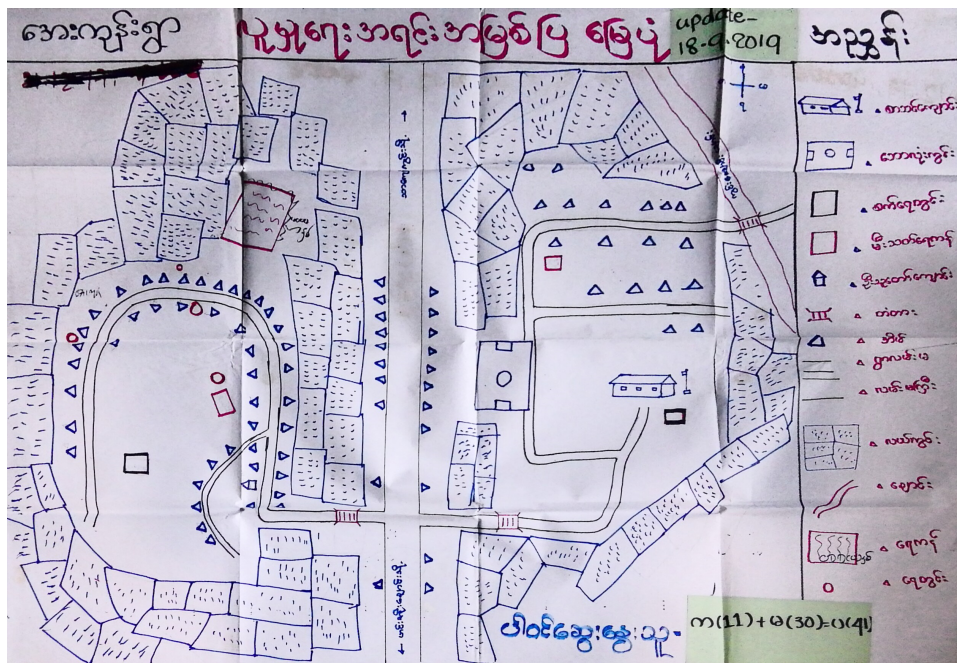 အေးကုန်းရွာ
လူမှုရေးအရင်းအမြစ်ပြ မြေပုံ
update-
18-9-2019
အညွှန်း
စာသင်ကျောင်း
ဘောလုံးကွင်း
စက်ရေတွင်း
မီးသတ်ရေကန်
တံတား
အိမ်
ရွာလမ်းမ
လမ်းမကြီး
လယ်ကွင်း
ချောင်း
ရေကန်
ရေတွင်း
ပါဝင်ဆွေးနွေးသူ-
က(11)+မ(30)=ပ(41)